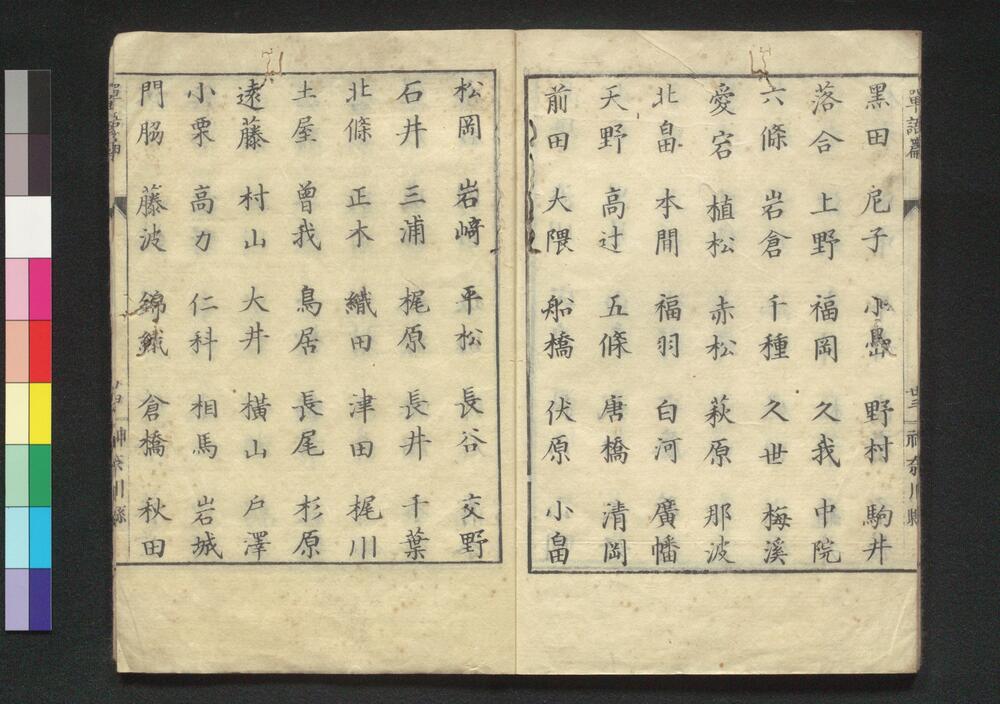 單語篇
黑田 尼子 小嶌 野村 駒井
落合 上野 福岡 久我 中院
六條 岩倉 千種 久世 梅溪
愛宕 植松 赤松 萩原 那波
北畠 本間 福羽 白河 廣幡
天野 高辻 五條 唐橋 清岡
前田 大隈 船橋 伏原 小畠
廿三 神奈川縣
松岡 岩﨑 平松 長谷 交野
石井 三浦 梶原 長井 千葉
北條 正木 織田 津田 梶川
土屋 曾我 鳥居 長尾 杉原
遠藤 村山 大井 橫山 戶澤
小栗 高力 仁科 相馬 岩城
門脇 藤波 錦織 倉橋 秋田
神奈川縣